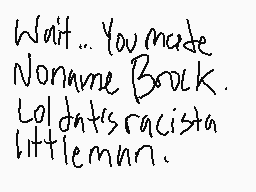 Wait... You made
Noname Brock.
Lol dat's racista
littleman.